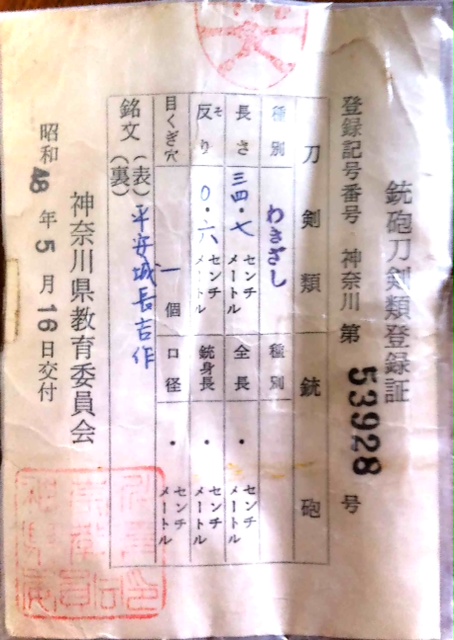 銃砲刀剣類登録証
登録記号番号 神奈川 第 53928 号
刀剣類
銃砲
種別 わきざし
種別
長さ 三四・七 センチメートル
全長 ・ センチメートル
反り そ 0・六 センチメートル
銃身長 ・ センチメートル
目くぎ穴 一 個
口径 ・ センチメートル
銘文 (表) 平安城長吉作
(裏)
神奈川県教育委員会
昭和 48 年 5 月 16 日交付